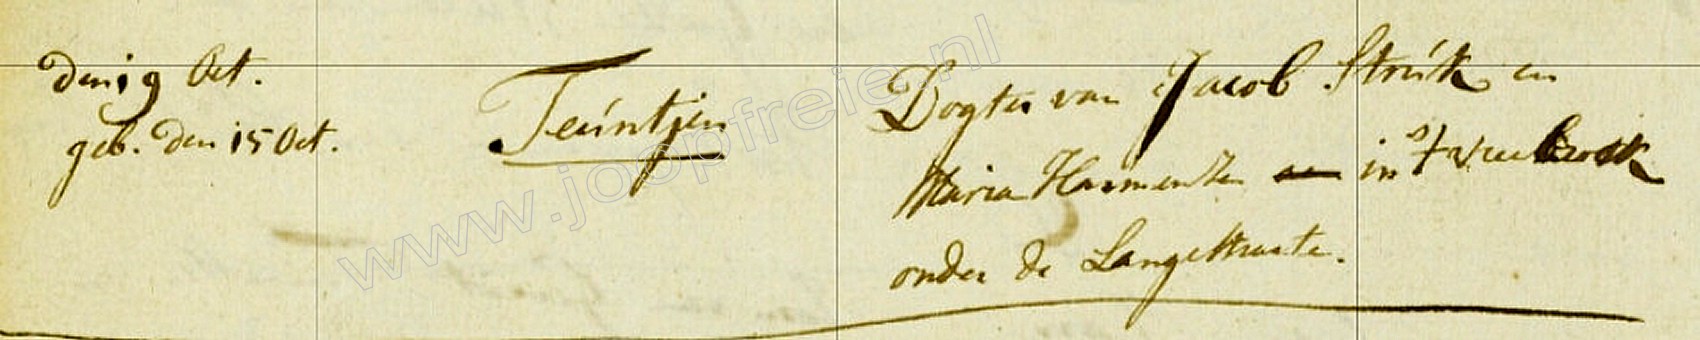 den 19 Oct.
geb. den 15 Oct.
Teúntjen
Dogter van Jacob Strúik en
Maria Harmensen in 't vree broek
onder de Langestraate.
www.joopfreie.nl